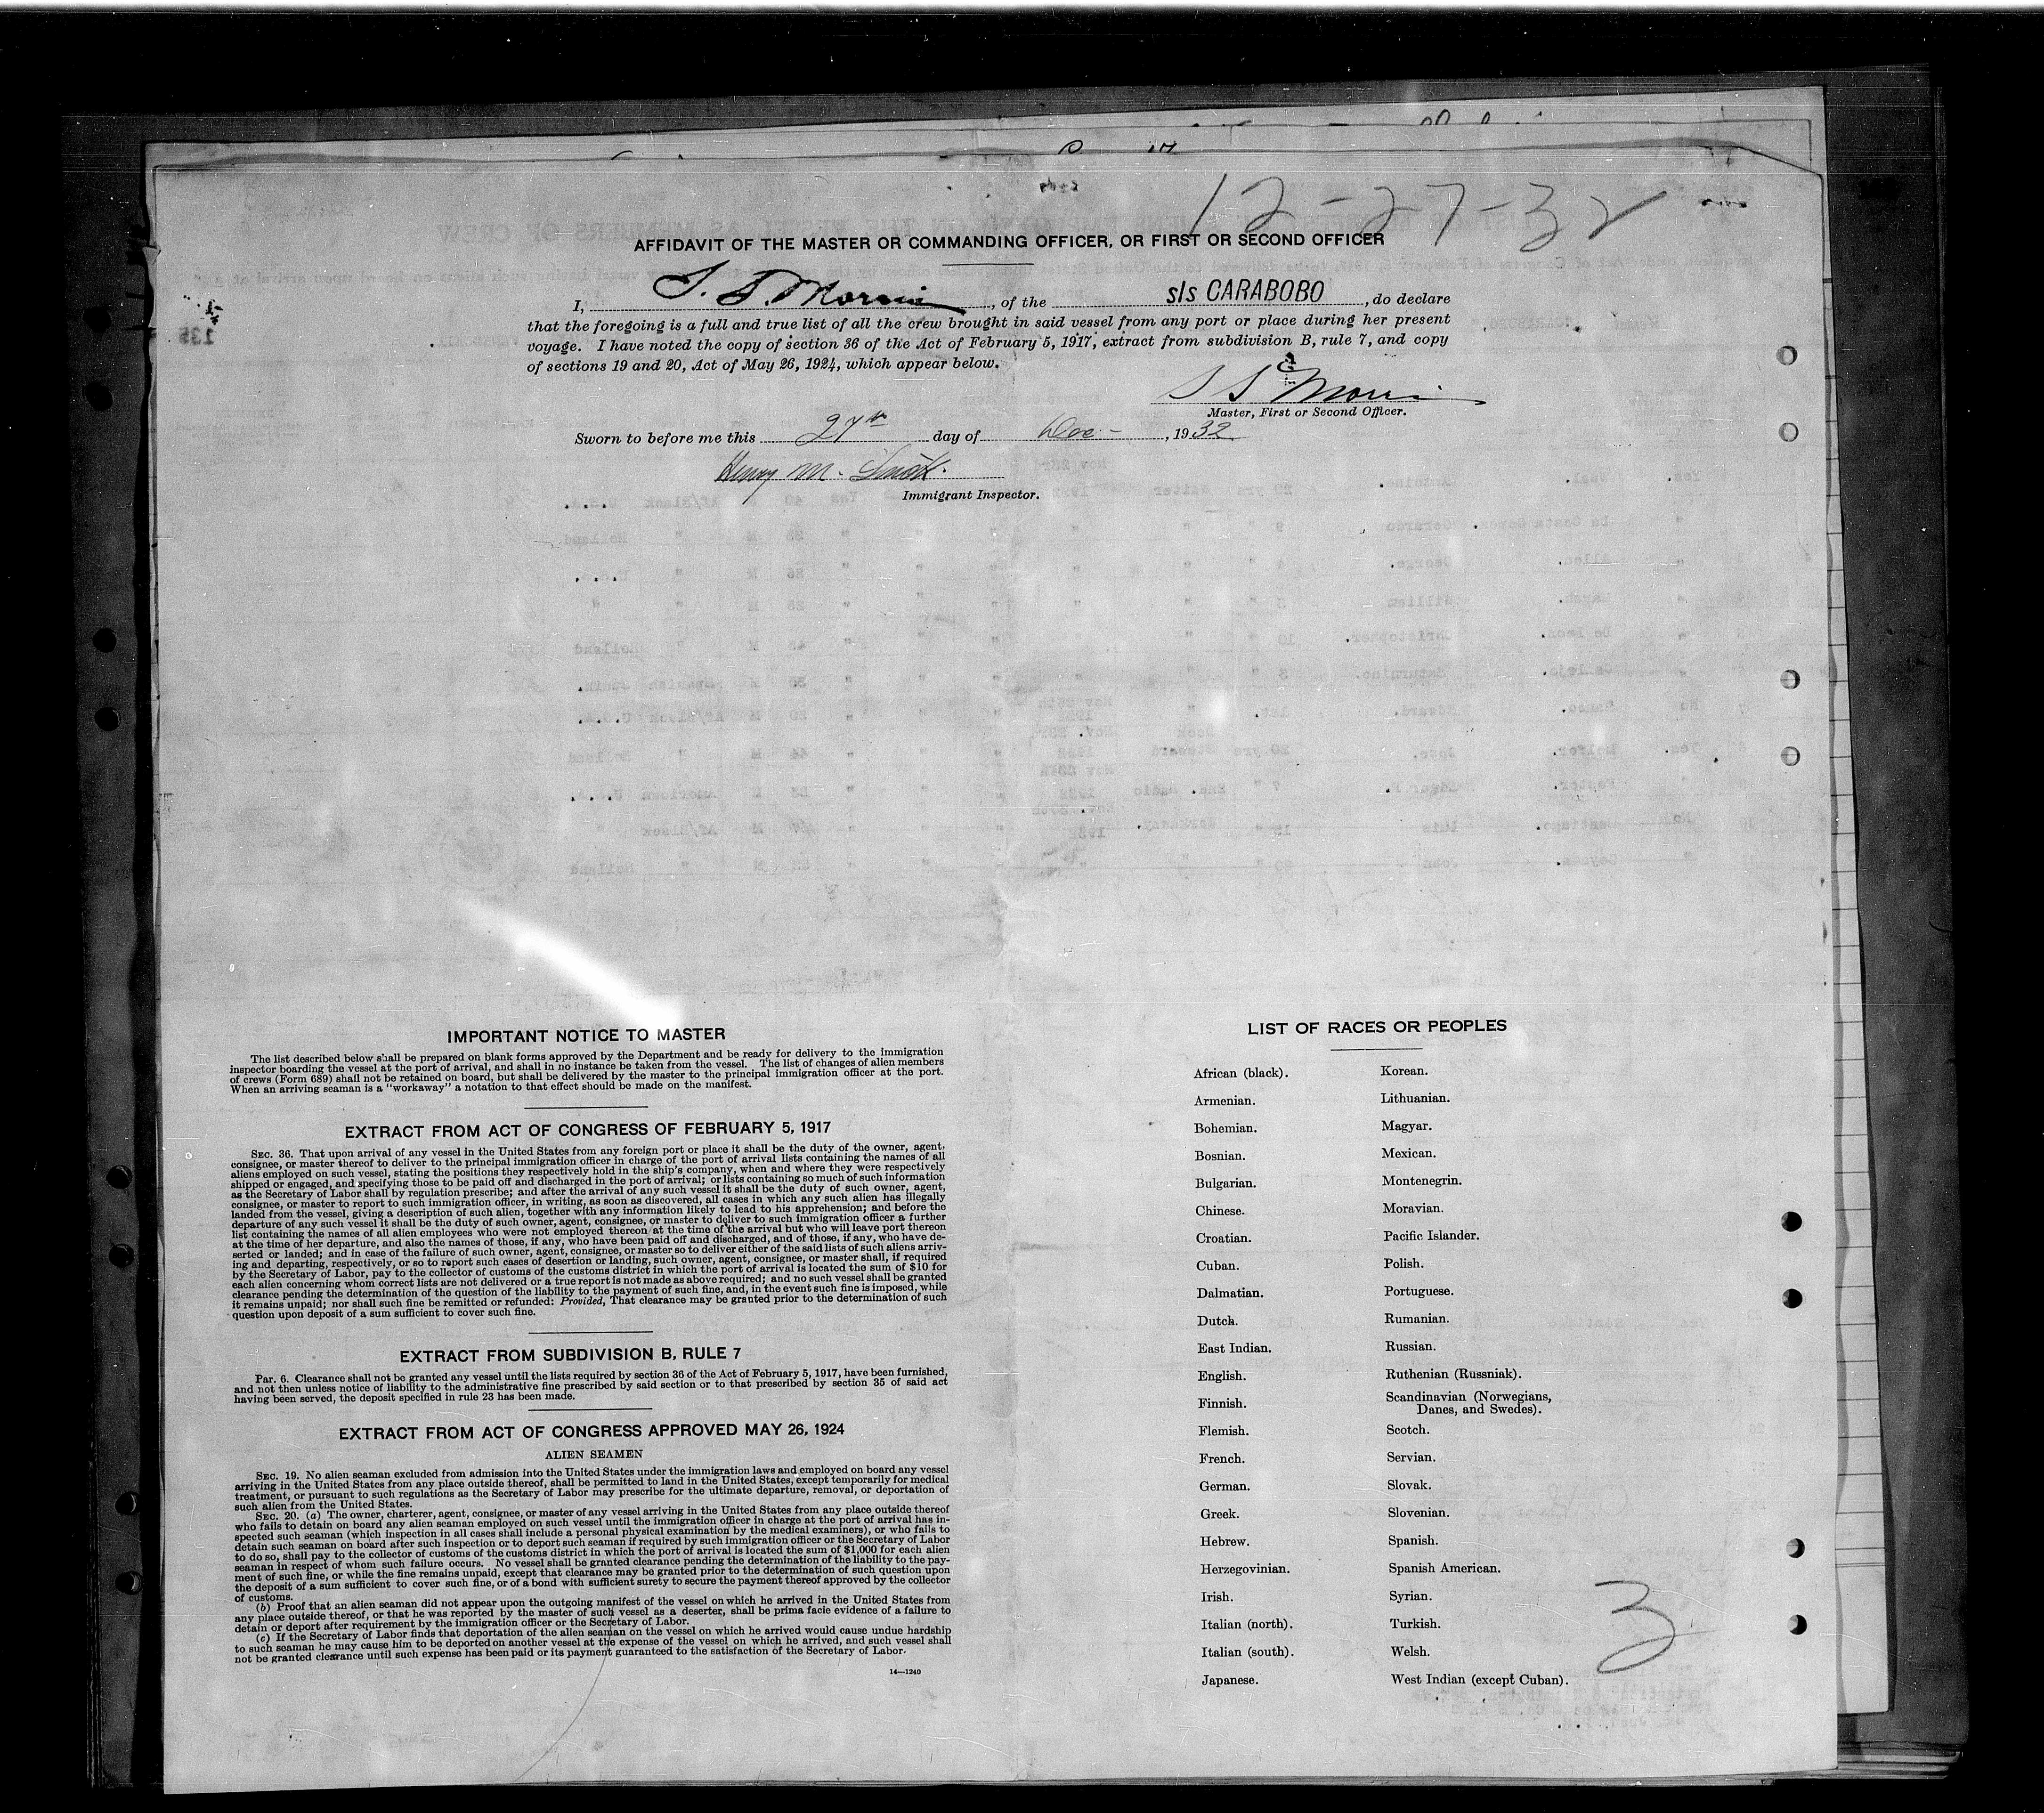 12-27-32
AFFIDAVIT OF THE MASTER OR COMMANDING OFFICER, OR FIRST OR SECOND OFFICER
I, S. S. Morris, of the s/s CARABOBO, do declare
that the foregoing is a full and true list of all the crew brought in said vessel from any port or place during her present
voyage. I have noted the copy of section 36 of the Act of February 5, 1917, extract from subdivision B, rule 7, and copy
of sections 19 and 20, Act of May 26, 1924, which appear below.
Morris
Master, First or Second Officer.
Sworn to before me this 27th day of Dec-, 1932
Henry M.
Immigrant Inspector.
IMPORTANT NOTICE TO MASTER
The list described below shall be prepared on blank forms approved by the Department and be ready for delivery to the immigration
inspector boarding the vessel at the port of arrival, and shall in no instance be taken from the vessel. The list of changes of alien members
of crews (Form 689) shall not be retained on board, but shall be delivered by the master to the principal immigration officer at the port.
When an arriving seaman is a "workaway" a notation to that effect should be made on the manifest.
EXTRACT FROM ACT OF CONGRESS OF FEBRUARY 5, 1917
SEC. 36. That upon arrival of any vessel in the United States from any foreign port or place it shall be the duty of the owner, agent,
consignee, or master thereof to deliver to the principal immigration officer in charge of the port of arrival lists containing the names of all
aliens employed on such vessel, stating the positions they respectively hold in the ship's company, when and where they were respectively
shipped or engaged, and specifying those to be paid off and discharged in the port of arrival; or lists containing so much of such information
as the Secretary of Labor shall by regulation prescribe; and after the arrival of any such vessel it shall be the duty of such owner, agent,
consignee, or master to report to such immigration officer, in writing, as soon as discovered, all cases in which any such alien has illegally
landed from the vessel, giving a description of such alien, together with any information likely to lead to his apprehension; and before the
departure of any such vessel it shall be the duty of such owner, agent, consignee, or master to deliver to such immigration officer a further
list containing the names of all alien employees who were not employed thereon at the time of the arrival but who will leave port thereon
at the time of her departure, and also the names of those, if any, who have been paid off and discharged, and of those, if any, who have de-
serted or landed; and in case of the failure of such owner, agent, consignee, or master so to deliver either of the said lists of such aliens arriv-
ing and departing, respectively, or so to report such cases of desertion or landing, such owner, agent, consignee, or master shall, if required
by the Secretary of Labor, pay to the collector of customs of the customs district in which the port of arrival is located the sum of $10 for
each alien concerning whom correct lists are not delivered or a true report is not made as above required; and no such vessel shall be granted
clearance pending the determination of the question of the liability to the payment of such fine, and, in the event such fine is imposed, while
it remains unpaid; nor shall such fine be remitted or refunded: Provided, That clearance may be granted prior to the determination of such
question upon deposit of a sum sufficient to cover such fine.
EXTRACT FROM SUBDIVISION B, RULE 7
Par. 6. Clearance shall not be granted any vessel until the lists required by section 36 of the Act of February 5, 1917, have been furnished,
and not then unless notice of liability to the administrative fine prescribed by said section or to that prescribed by section 35 of said act
having been served, the deposit specified in rule 23 has been made.
EXTRACT FROM ACT OF CONGRESS APPROVED MAY 26, 1924
ALIEN SEAMEN
SEC. 19. No alien seaman excluded from admission into the United States under the immigration laws and employed on board any vessel
arriving in the United States from any place outside thereof, shall be permitted to land in the United States, except temporarily for medical
treatment, or pursuant to such regulations as the Secretary of Labor may prescribe for the ultimate departure, removal, or deportation of
such alien from the United States.
SEC. 20. (a) The owner, charterer, agent, consignee, or master of any vessel arriving in the United States from any place outside thereof
who fails to detain on board any alien seaman employed on such vessel until the immigration officer in charge at the port of arrival has in-
spected such seaman (which inspection in all cases shall include a personal physical examination by the medical examiners), or who fails to
detain such seaman on board after such inspection or to deport such seaman if required by such immigration officer or the Secretary of Labor
to do so, shall pay to the collector of customs of the customs district in which the port of arrival is located the sum of $1,000 for each alien
seaman in respect of whom such failure occurs. No vessel shall be granted clearance pending the determination of the liability to the pay-
ment of such fine, or while the fine remains unpaid, except that clearance may be granted prior to the determination of such question upon
the deposit of a sum sufficient to cover such fine, or of a bond with sufficient surety to secure the payment thereof approved by the collector
of customs.
(b) Proof that an alien seaman did not appear upon the outgoing manifest of the vessel on which he arrived in the United States from
any place outside thereof, or that he was reported by the master of such vessel as a deserter, shall be prima facie evidence of a failure to
detain or deport after requirement by the immigration officer or the Secretary of Labor.
(c) If the Secretary of Labor finds that deportation of the alien seaman on the vessel on which he arrived would cause undue hardship
to such seaman he may cause him to be deported on another vessel at the expense of the vessel on which he arrived, and such vessel shall
not be granted clearance until such expense has been paid or its payment guaranteed to the satisfaction of the Secretary of Labor.
14—1240
LIST OF RACES OR PEOPLES
African (black).
Armenian.
Bohemian.
Bosnian.
Bulgarian.
Chinese.
Croatian.
Cuban.
Dalmatian.
Dutch.
East Indian.
English.
Finnish.
Flemish.
French.
German.
Greek.
Hebrew.
Herzegovinian.
Irish.
Italian (north).
Italian (south).
Japanese.
Korean.
Lithuanian.
Magyar.
Mexican.
Montenegrin.
Moravian.
Pacific Islander.
Polish.
Portuguese.
Rumanian.
Russian.
Ruthenian (Russniak).
Scandinavian (Norwegians,
Danes, and Swedes).
Scotch.
Servian.
Slovak.
Slovenian.
Spanish.
Spanish American.
Syrian.
Turkish.
Welsh.
West Indian (except Cuban).
3